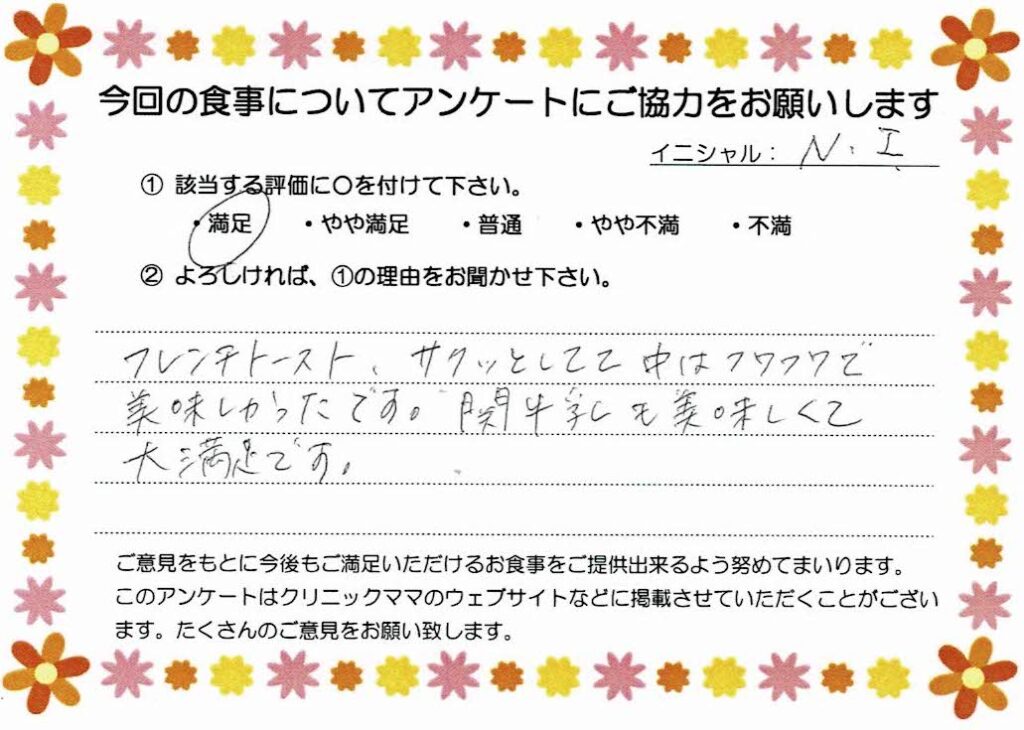 今回の食事についてアンケートにご協力をお願いします
イニシャル： N.I
① 該当する評価に○を付けて下さい。
・満足 ・やや満足 ・普通 ・やや不満 ・不満
② よろしければ、①の理由をお聞かせ下さい。
フレンチトースト、サクッとしてて中はフワフワで
美味しかったです。関牛乳も美味しくて
大満足です。
ご意見をもとに今後もご満足いただけるお食事をご提供出来るよう努めてまいります。
このアンケートはクリニックママのウェブサイトなどに掲載させていただくことがござい
ます。たくさんのご意見をお願い致します。